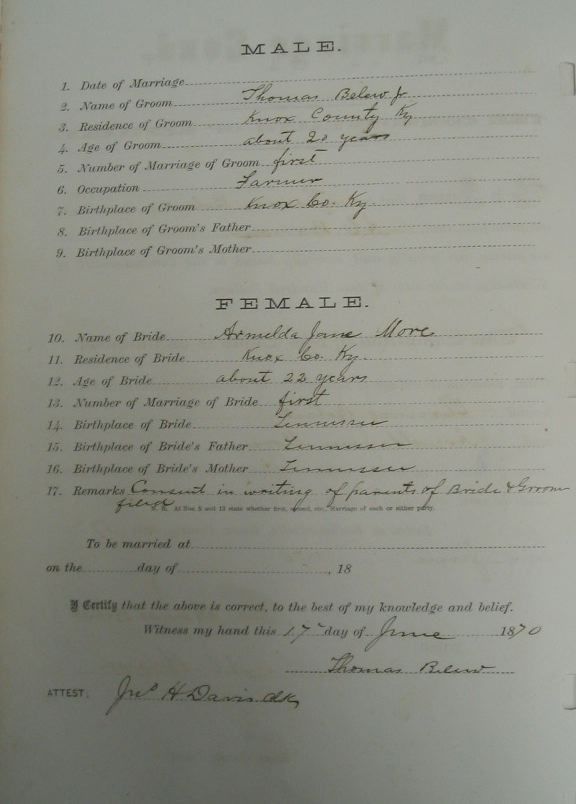 MALE.
1. Date of Marriage
2. Name of Groom Thomas Belew Jr
3. Residence of Groom Knox County Ky
4. Age of Groom about 20 years
5. Number of Marriage of Groom first
6. Occupation Farmer
7. Birthplace of Groom Knox Co. Ky
8. Birthplace of Groom's Father
9. Birthplace of Groom's Mother
FEMALE.
10. Name of Bride Armelda Jane More
11. Residence of Bride Knox Co. Ky.
12. Age of Bride about 22 years
13. Number of Marriage of Bride first
14. Birthplace of Bride Tennessee
15. Birthplace of Bride's Father Tennessee
16. Birthplace of Bride's Mother Tennessee
17. Remarks Consent in writing of parents of Bride & Groom
filed
At Nos. 5 and 13 state whether first, second, etc., Marriage of each or either party.
To be married at
on the day of , 18
I Certify that the above is correct, to the best of my knowledge and belief.
Witness my hand this 17th day of June 1870
Thomas Belew
ATTEST. Jno H Davis clk